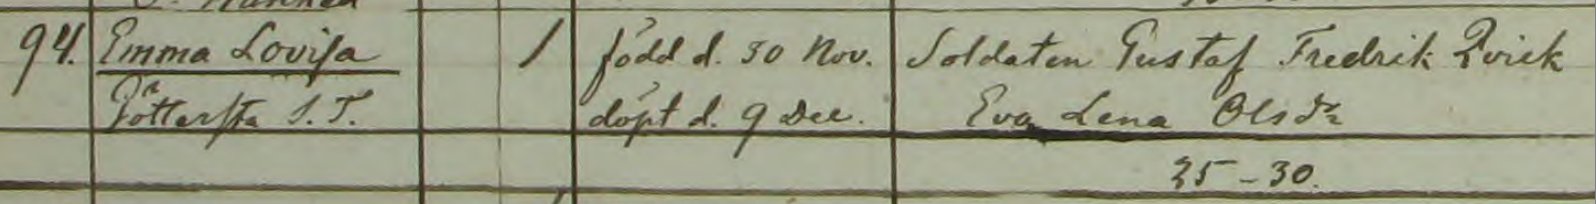 94. Emma Lovisa 1 född d. 30 Nov. Soldaten Gustaf Fredrik Qvick
Göttersta S. T. döpt d. 9 Dec. Eva Lena Olsdr
25-30.